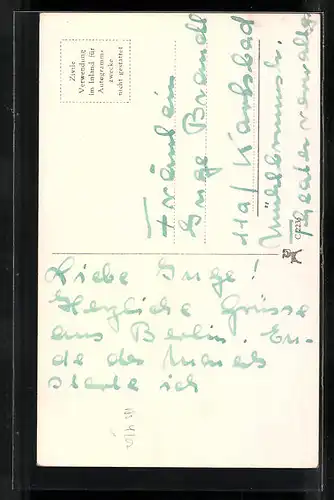 Zivile
Verwendung
im Inland für
Autogramm-
zwecke
nicht gestattet
Fräulein
Inge Brandt
11a) Karlsbad
Mühlbrunnstr.
Theaterverwaltg
C 2235
Liebe Inge!
Herzliche Grüsse
aus Berlin. En-
de des Monats
starte ich